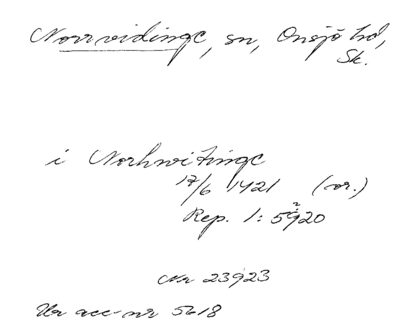 Norrvidinge, sn, Onsjö hd,
Sk.
i Norhwitinge
17/6 1421 (or.)
Rep. 1: 5920
Nr 23923
Ur acc-nr 5618